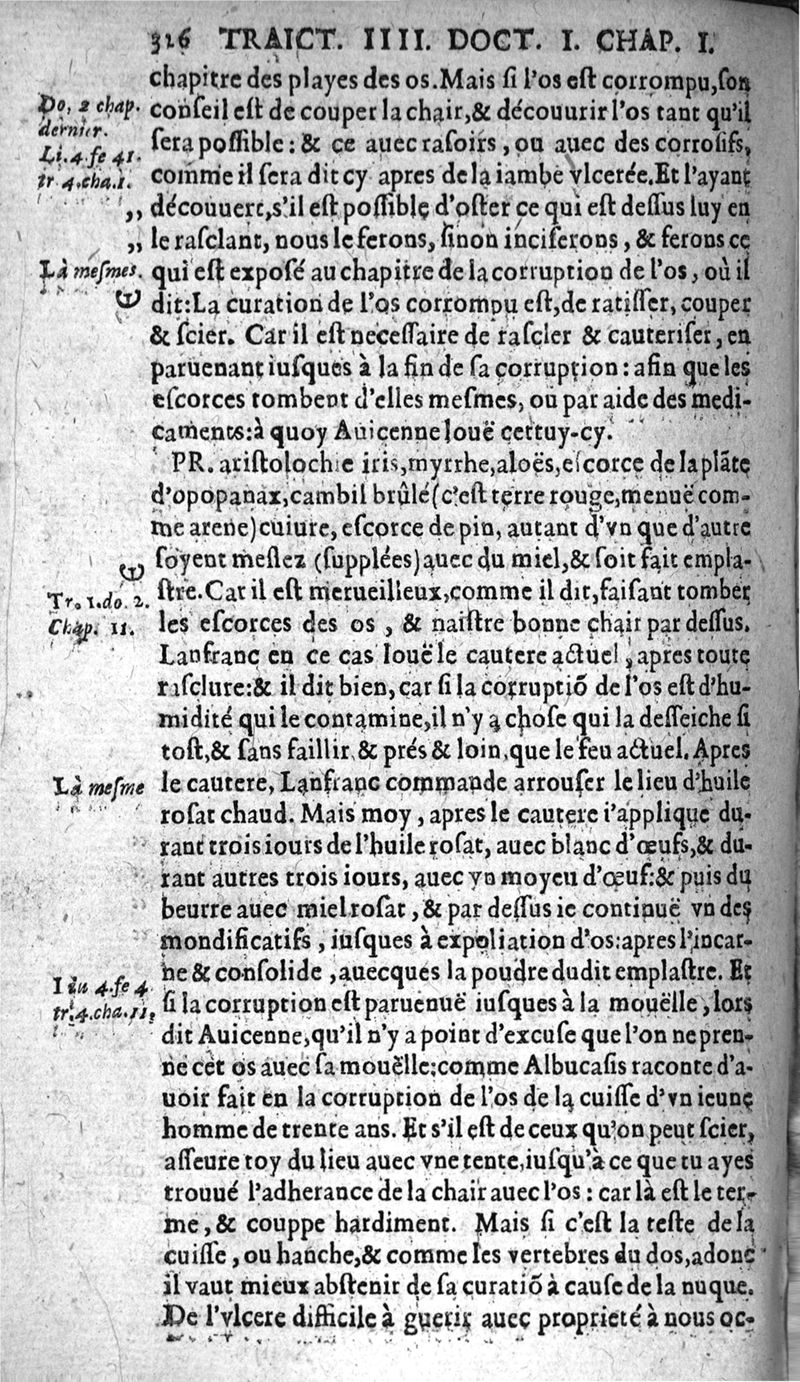 316 TRAICT. IIII. DOCT. I. CHAP. I.
chapitre des playes des os. Mais ſi l'os eſt corrompu, ſon
Do, 2 chap. conſeil eſt de couper la chair, & découurir l'os tant qu'il
dernier. ſera poſſible : & ce auec raſoirs, ou auec des corroſifs,
Li. 4. fe 41. tr 4. cha. 1. comme il ſera dit cy apres de la iambe vlcerée. Et l'ayant
,, découuert, s'il eſt poſſible d'oſter ce qui eſt deſſus luy en
,, le raſclant, nous le ferons, ſinon inciſerons, & ferons ce
Là meſmes. qui eſt expoſé au chapitre de la corruption de l'os, où il
dit: La curation de l'os corrompu eſt, de ratiſſer, couper
& ſcier. Car il eſt neceſſaire de raſcler & cauteriſer, en
paruenant iuſques à la fin de ſa corruption : afin que les
eſcorces tombent d'elles meſmes, ou par aide des medi-
caments: à quoy Auicenne louë cettuy-cy.
PR. ariſtolochie iris, myrrhe, aloës, eſcorce de la plāte
d'opopanax, cambil brûlé (c'eſt terre rouge, menuë com-
me arene) cuiure, eſcorce de pin, autant d'vn que d'autre
ſoyent meſlez (ſupplées) auec du miel, & ſoit fait empla-
Tr. 1. do. 2. ſtre. Car il eſt merueilleux, comme il dit, faiſant tomber
Chap. 11. les eſcorces des os, & naiſtre bonne chair par deſſus.
Lanfranc en ce cas louë le cautere actuel, apres toute
raſclure: & il dit bien, car ſi la corruptiō de l'os eſt d'hu-
midité qui le contamine, il n'y a choſe qui la deſſeiche ſi
toſt, & ſans faillir, & prés & loin, que le feu actuel. Apres
Là meſme le cautere, Lanfranc commande arrouſer le lieu d'huile
roſat chaud. Mais moy, apres le cautere i'applique du-
rant trois iours de l'huile roſat, auec blanc d'œufs, & du-
rant autres trois iours, auec vn moyeu d'œuf: & puis du
beurre auec miel roſat, & par deſſus ie continuë vn des
mondificatifs, iuſques à expoliation d'os: apres l'incar-
Liu 4. fe 4. ne & conſolide, auecques la poudre dudit emplaſtre. Et
tr. 4. cha. 11, ſi la corruption eſt paruenuë iuſques à la mouëlle, lors
dit Auicenne, qu'il n'y a point d'excuſe que l'on ne pren-
ne cét os auec ſa mouëlle: comme Albucaſis raconte d'a-
uoir fait en la corruption de l'os de la cuiſſe d'vn ieune
homme de trente ans. Et s'il eſt de ceux qu'on peut ſcier,
aſſeure toy du lieu auec vne tente, iuſqu'à ce que tu ayes
trouué l'adherance de la chair auec l'os : car là eſt le ter-
me, & couppe hardiment. Mais ſi c'eſt la teſte de la
cuiſſe, ou hanche, & comme les vertebres du dos, adonc
il vaut mieux abſtenir de ſa curatiō à cauſe de la nuque.
De l'vlcere difficile à guerir auec proprieté à nous oc-